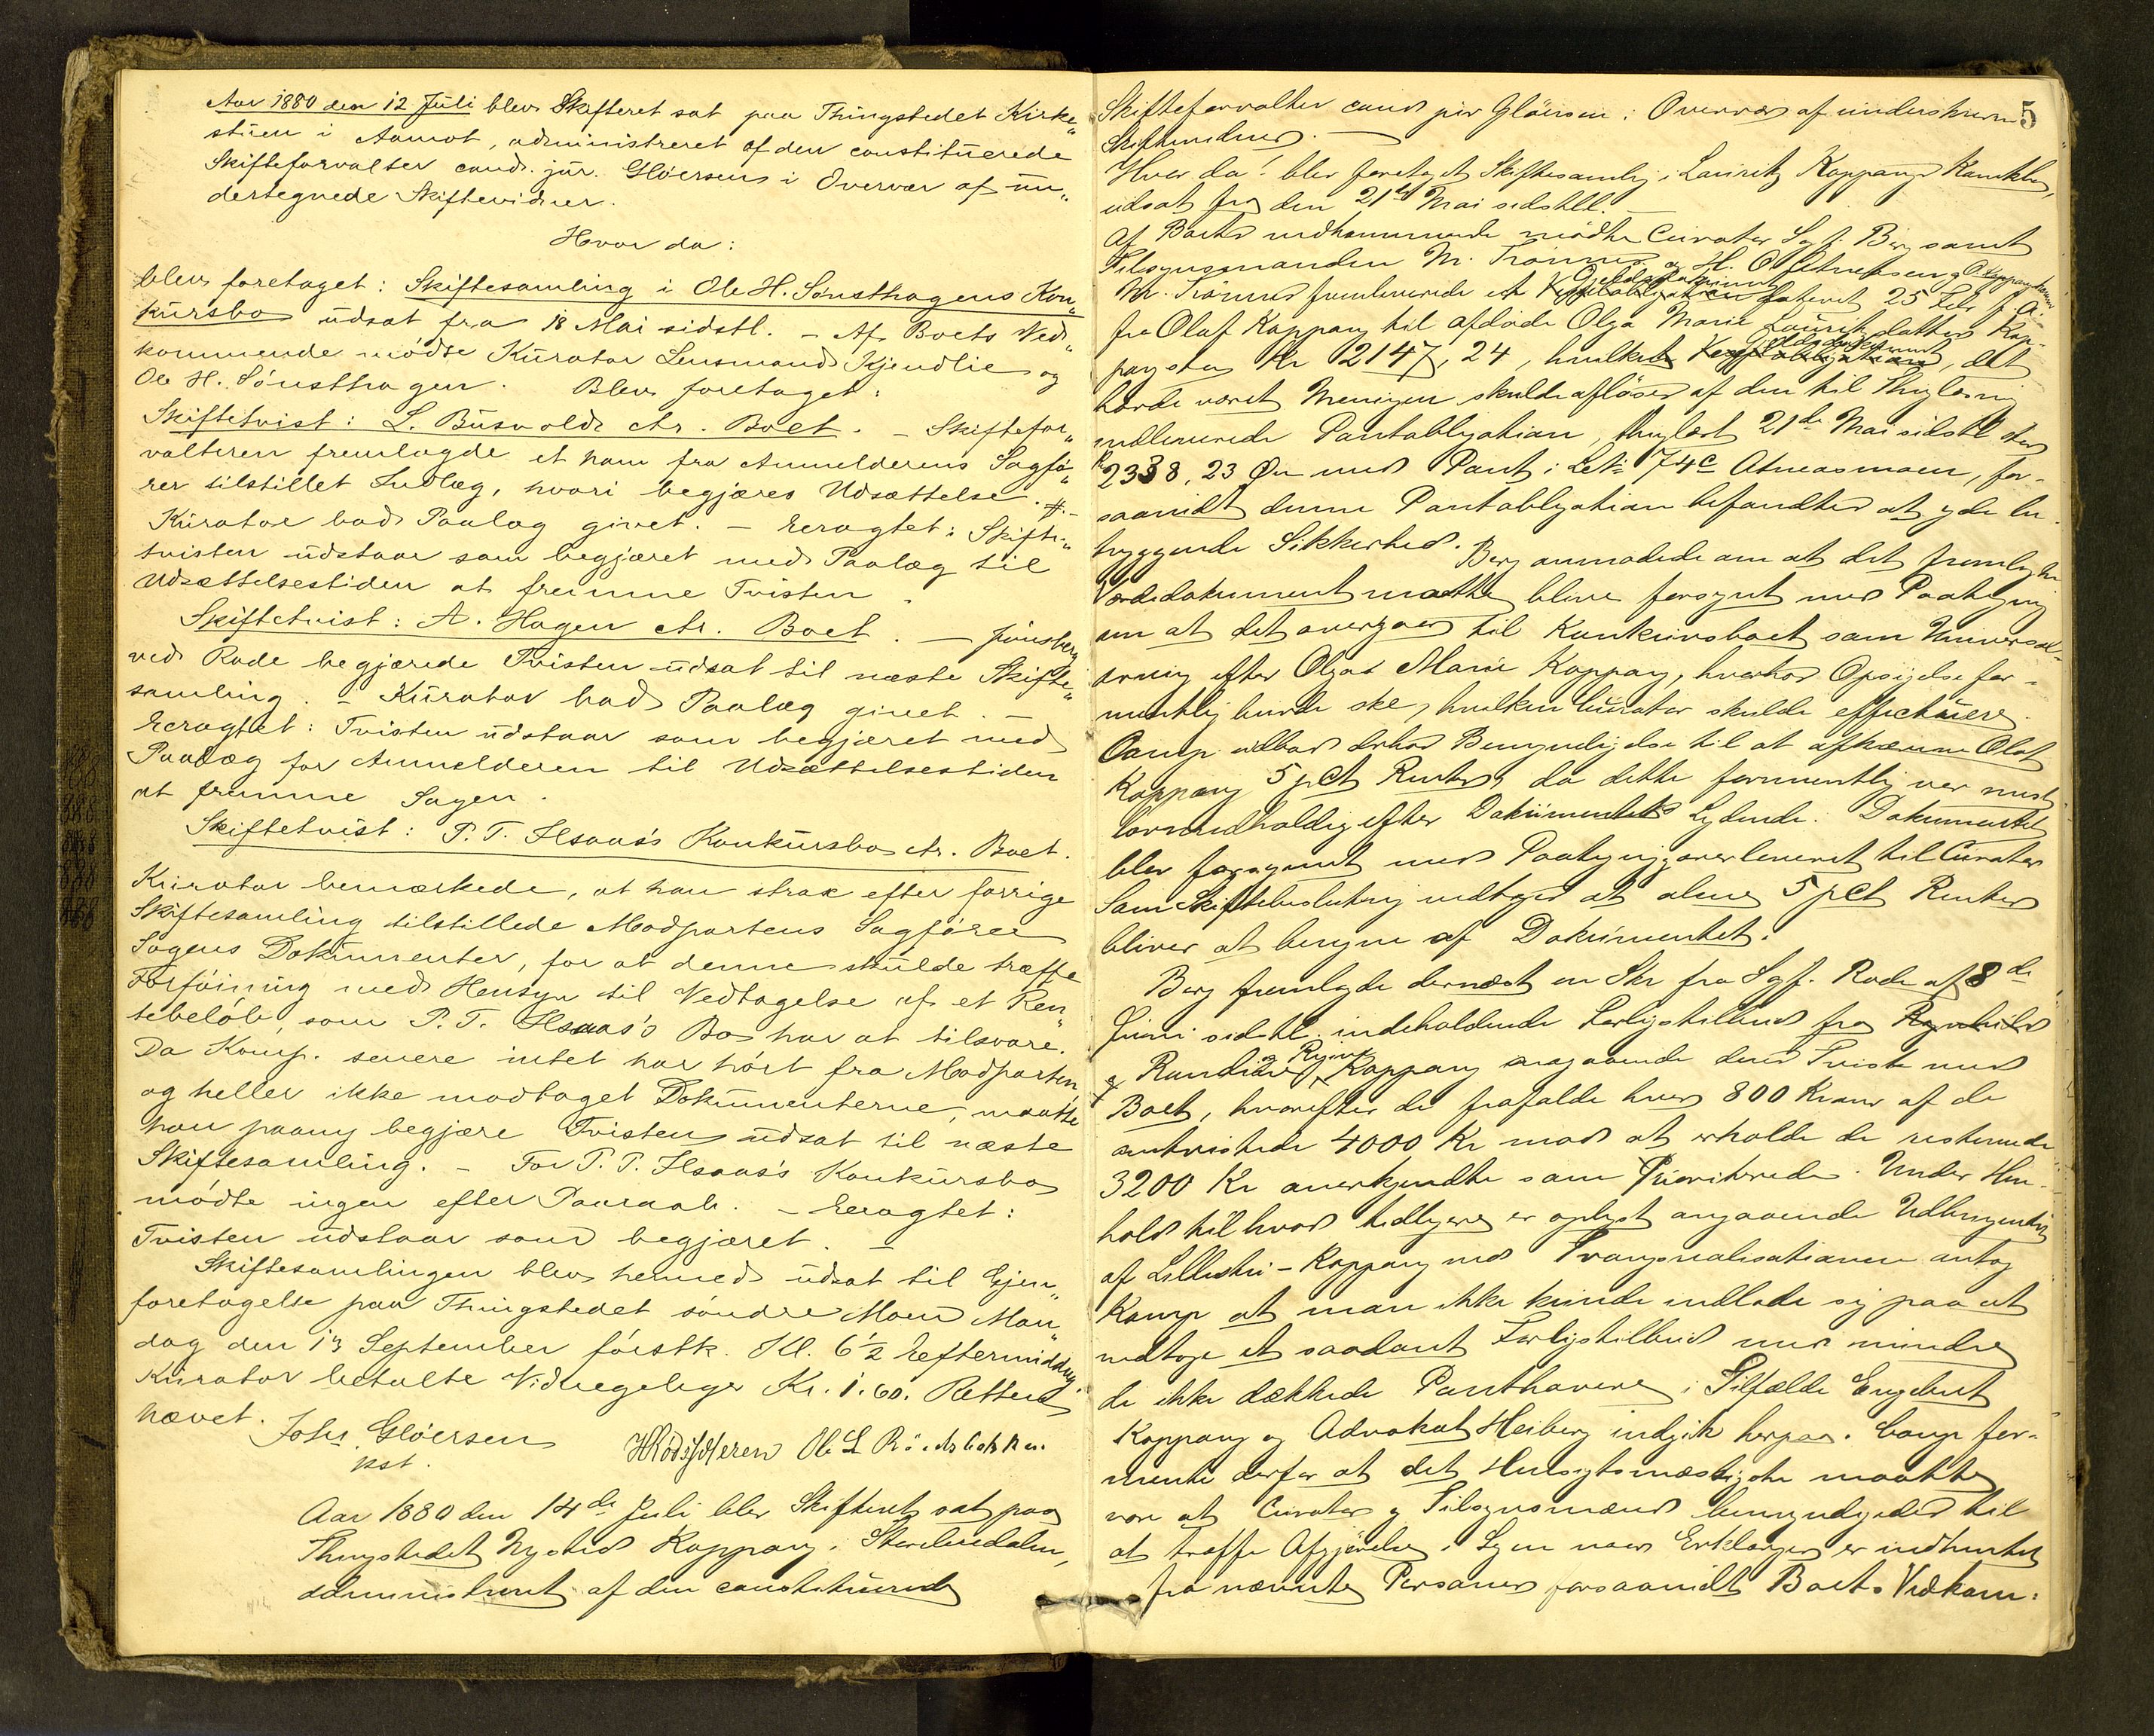 Aar 1880 den 12 Juli blev Skifteret sat paa Thingstedet Kirke„
stuen i Aamot, administreret af den constituerede
Skifteforvalter cand. jur. Gløersen i Overvær af un„
dertegnede Skiftevidner.
Hvor da:
blev foretaget: Skiftesamling i Ole H. Sønsthagens Kon„
kursbo udsat fra 18 Mai sidstl. – Af Boets Ved„
kommende mødte Kurator Lensmand Kjendlie og
Ole H. Sønsthagen. Blev foretaget:
Skiftetvist: L. Busvolds ctr. Boet. – Skiftefor„
valteren fremlagde et ham fra Anmelderens Sagfø„
rer tilstillet Indlæg, hvori begjæres Udsættelse. –
Kurator bad Paalæg givet. – Eeragtet: Skifte„
tvisten udstaar som begjæret med Paalæg til
Udsættelsestiden at fremme Tvisten
Skiftetvist: A. Hagen ctr. Boet. – Jonsberg
ved Rode begjærede Tvisten udsat til næste Skifte„
samling. – Kurator bad Paalæg givet. –
Eeragtet: Tvisten udstaar som begjæret med
Paalæg for Anmelderen til Udsættelsestiden
at fremme Sagen.
Skiftetvist: P. T. Ilsaas's Konkursbo ctr. Boet.
Kurator bemærkede, at han strax efter forrige
Skiftesamling tilstillede Modpartens Sagfører
Sagens Dokumenter, for at denne skulde træffe
Forføining med Hensyn til Vedtagelse af et Ren„
tebeløb, som P. T. Ilsaas's Bo har at tilsvare.
Da Komp. senere intet har hørt fra Modparten
og heller ikke modtaget Dokumenterne, maatte
han paany begjære Tvisten udsat til næste
Skiftesamling. – For P. T. Ilsaas's Konkursbo
mødte ingen efter Paaraab. – Eeragtet:
Tvisten udstaar som begjæret. –
Skiftesamlingen blev hermed udsat til Gjen„
foretagelse paa Thingstedet søndre Moen Man„
dag den 13 September førstk. Kl. 6½ Eftermiddag.
Kurator betalte Vidnegebyr Kr. 1.60. Retten
hævet.
Johs Gløersen
kst.
Ole L
Aar 1880 den 14de Juli blev Skifteret sat paa
Thingstedet Nysted Koppang i Storelvedalen,
administreret af den constituerede
5
Skifteforvalter cand jur Gløersen i Overvær af underskrevne
Skiftevidner.
Hvor da: blev foretaget Skiftesamling i Lauritz Koppangs Konkbo,
udsat fra den 21de Mai sidstll. –
Af Boets vedkommende mødte Curator Sgf. Berg samt
Tilsynsmanden M. Trønnes og H. O
Gjeldsdokument
M. Trønnes fremleverede et dateret 25 Febr f. A.
fra Olaf Koppang til afdøde Olga Marie Lauritzdatter Kop-
Gjeldsdokument
pang stor Kr 2147,24, hvilket, det
havde været Meningen skulde afløses af den til Thinglæsning
indleverede Pantobligation, thinglæst 21de Mai sidstl stor
Kr 2338,23 Øre med Pant i 74c Atneosmoen, for-
saavidt denne Pantobligation befandtes at yde be-
tryggende Sikkerhed. Berg anmodede om at det fremlagte
Gjeldsdokument maatte blive forsynt med Paategning
om at det overgaar til Konkursboet som Universal-
arving efter Olga Marie Koppang, hvorhos Opsigelse for-
mentlig burde ske, hvilken Curator skulde effectuere.
Comp. udbad derhos Bemyndigelse til at afkræve Olaf
Koppang 5 pCt Renter, da dette formentlig var mest
lovmedholdig efter Dokumentets Lydende. Dokumentet
blev forsynet med Paategning overleveret til Curator
Som Skiftebeslutning vedtoges at alene 5 pCt Renter
bliver at beregne af Dokumentet.
Berg fremlagde dernæst en Skr fra Sgf. Rode af 8de
Juni sidstl. indeholdende Forligstilbud fra Ragnhild
og Regine
og Randine Koppang angaaende deres Tviste med
Boet, hvorefter de frafalde hver 800 Kroner af de
omtvistede 4000 Kr mod at erholde de resterende
3200 Kr anerkjendte som Prioriterede. Under Hen-
hold til hvad tidligere er oplyst angaaende Udbringendet
af Lillestu-Koppang ved Tvangsrealisationen antog
Komp at man ikke kunde indlade sig paa at
vedtage et saadant Forligstilbud med mindre
de ikke dækkede Panthavere i Tilfælde Engebret
Koppang og Advokat Heiberg indgik herpaa. Comp for-
mente derfor at det Hensigtsmæssigste maatte
være at Curator og Tilsynsmænd bemyndigedes til
at træffe Afgjørelse i Sagen naar Erklæringer er indhentet
fra nævnte Personer forsaavidt Boets Vedkom: